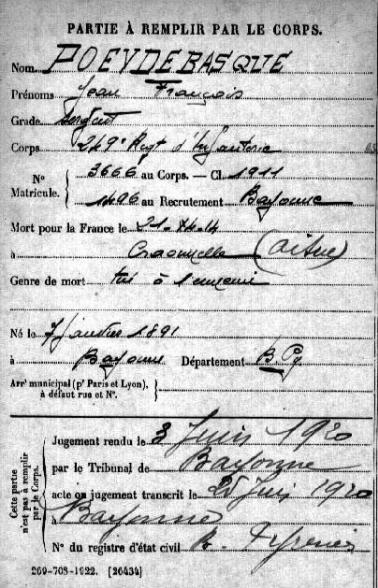 PARTIE À REMPLIR PAR LE CORPS.
Nom POEYDEBASQUE
Prénoms Jean François
Grade Sergent
Corps 249e Regt d'Infanterie
N° Matricule. 3666 au Corps. — Cl. 1911
1496 au Recrutement Bayonne
Mort pour la France le 21-
à Craonnelle (Aisne)
Genre de mort tué à l'ennemi
Né le 7 Janvier 1891
à Bayonne Département B. Py
Arrt municipal (pr Paris et Lyon),
à défaut rue et N°.
Cette partie n'est pas à remplir par le Corps.
Jugement rendu le 3 Juin 1920
par le Tribunal de Bayonne
acte ou jugement transcrit le 25 Juin 1920
à Bayonne
N° du registre d'état civil B. Pyrénées
269-708-1922. [26434]